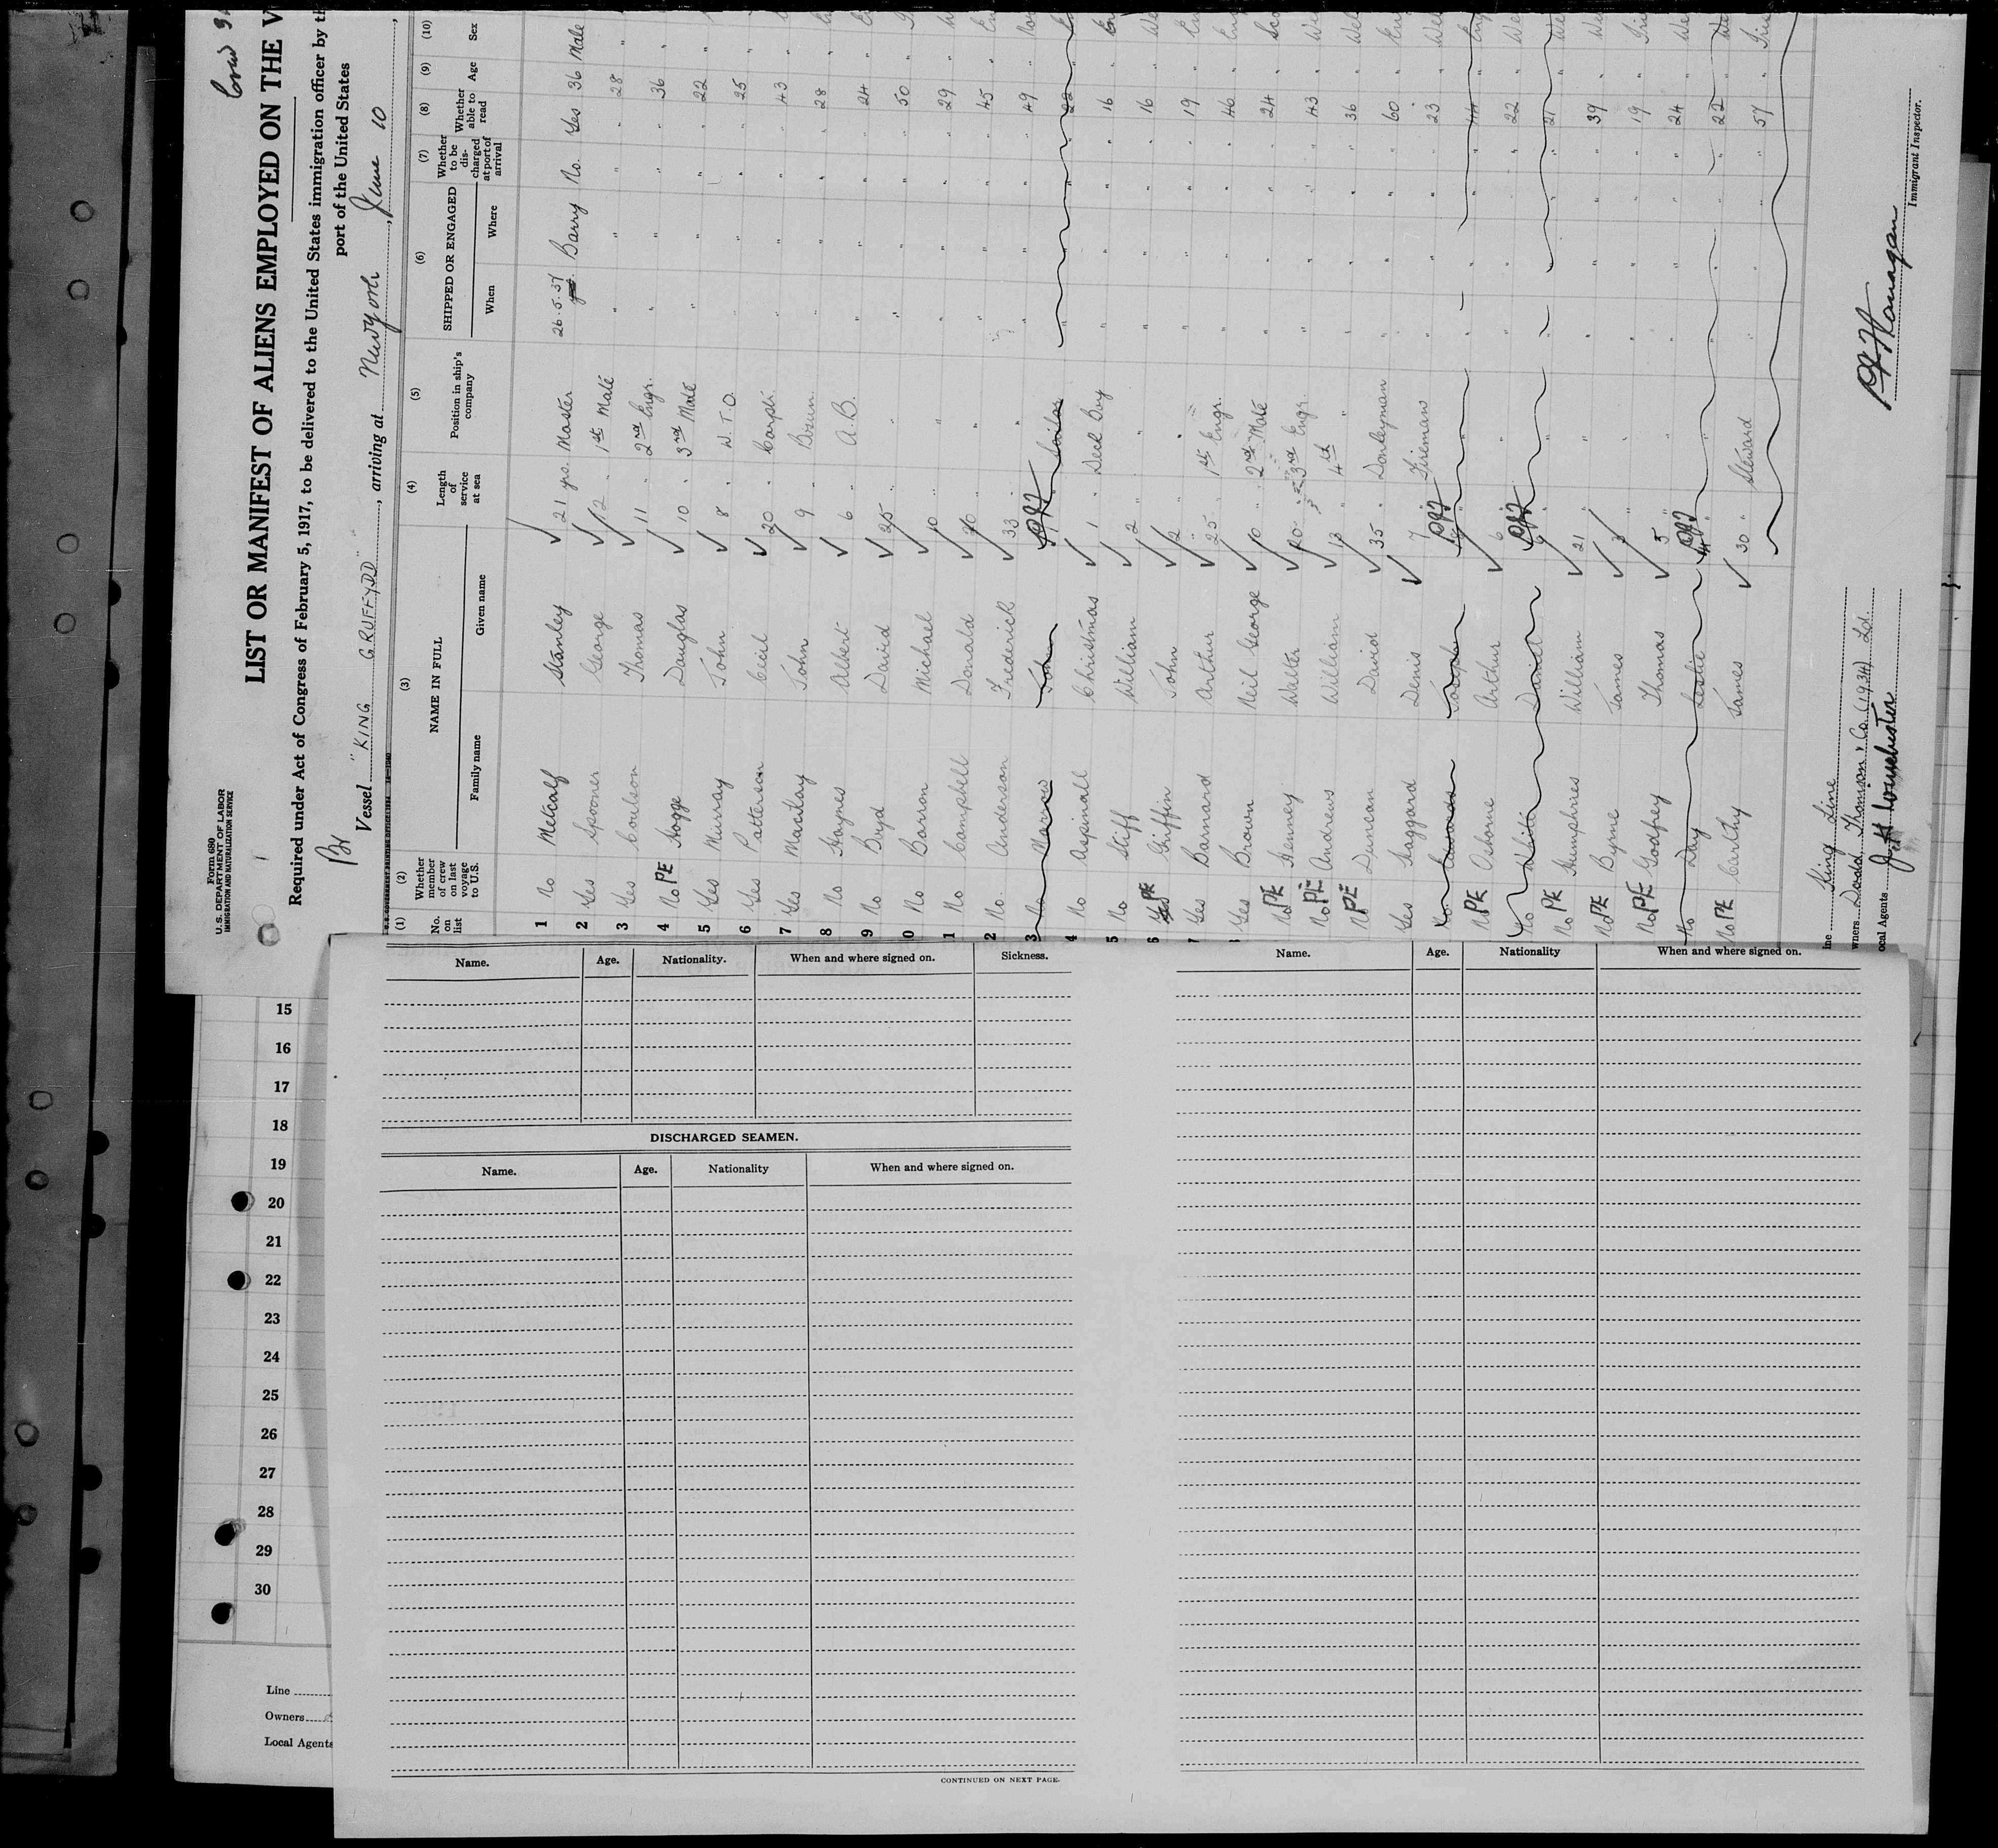 Form 680
U.S. DEPARTMENT OF LABOR
IMMIGRATION AND NATURALIZATION SERVICE
LIST OR MANIFEST OF ALIENS EMPLOYED ON THE V
Required under Act of Congress of February 5, 1917, to be delivered to the United States immigration officer by th
port of the United States
Vessel "KING GRUFFYDD", arriving at New York, June 10
(1) (2) (3) (4) (5) (6) (7) (8) (9) (10)
No. on list
Whether member of crew on last voyage to U.S.
NAME IN FULL
Family name Given name
Length of service at sea
Position in ship's company
SHIPPED OR ENGAGED
When Where
Whether to be discharged at port of arrival
Whether able to read
Age
Sex
1 No Metcalf Stanley 21 yrs. Master 26.5.37 Barry No. Yes 36 Male
2 Yes Spooner George 12 " 1st Mate " " " " 28 "
3 Yes Coulson Thomas 11 " 2nd Engr. " " " " 36 "
4 No PE Hogge Douglas 10 " 3rd Mate " " " " 22 "
5 Yes Murray John 8 " W.T.O. " " " " 25 "
6 Yes Patterson Cecil 20 " Carptr. " " " " 43 "
7 Yes MacKay John 9 " Bosun " " " " 28 "
8 No Haynes Albert 6 " A.B. " " " " 24 "
9 No Boyd David 25 " " " " " " 50 "
0 No Barron Michael 10 " " " " " " 29 "
1 No Campbell Donald 26 " " " " " " 45 "
2 No. Anderson Frederick 33 " " " " " " 49 "
3 No John Sailor
4 No Aspinall Christmas 1 " Deck Boy " " " " 16 "
5 No Stiff William 2 " " " " " " 16 "
6 Yes PE Griffin John 2 " " " " " " 19 "
Yes Barnard Arthur 25 " 1st Engr. " " " " 46 "
Yes Brown Neil George 10 " 2nd Mate " " " " 24 "
No PE Henney Walter 20 " 3rd Engr. " " " " 43 "
No PE Andrews William 13 " 4th " " " " " 36 "
No PE Duncan David 35 " Donkeyman " " " " 60 "
Yes Haggard Denis 7 " Fireman " " " " 23 "
No Joseph 44
No PE Osborne Arthur 6 " " " " " " 22 "
No White Daniel 21
No PE Humphries William 21 " " " " " " 39 "
No PE Byrne James " " " " " " 19 "
No PE Godfrey Thomas 5 " " " " " " 24 "
No Day Leslie 22
No PE Carthy James 30 " Steward " " " " 57 "
ine King Line
wners Dodd Thomson & Co. (1934) Ld.
ocal Agents
Immigrant Inspector.
Name. Age. Nationality. When and where signed on. Sickness.
DISCHARGED SEAMEN.
Name. Age. Nationality When and where signed on.
CONTINUED ON NEXT PAGE.
Name. Age. Nationality When and where signed on.
15
16
17
18
19
20
21
22
23
24
25
26
27
28
29
30
Line
Owners
Local Agents